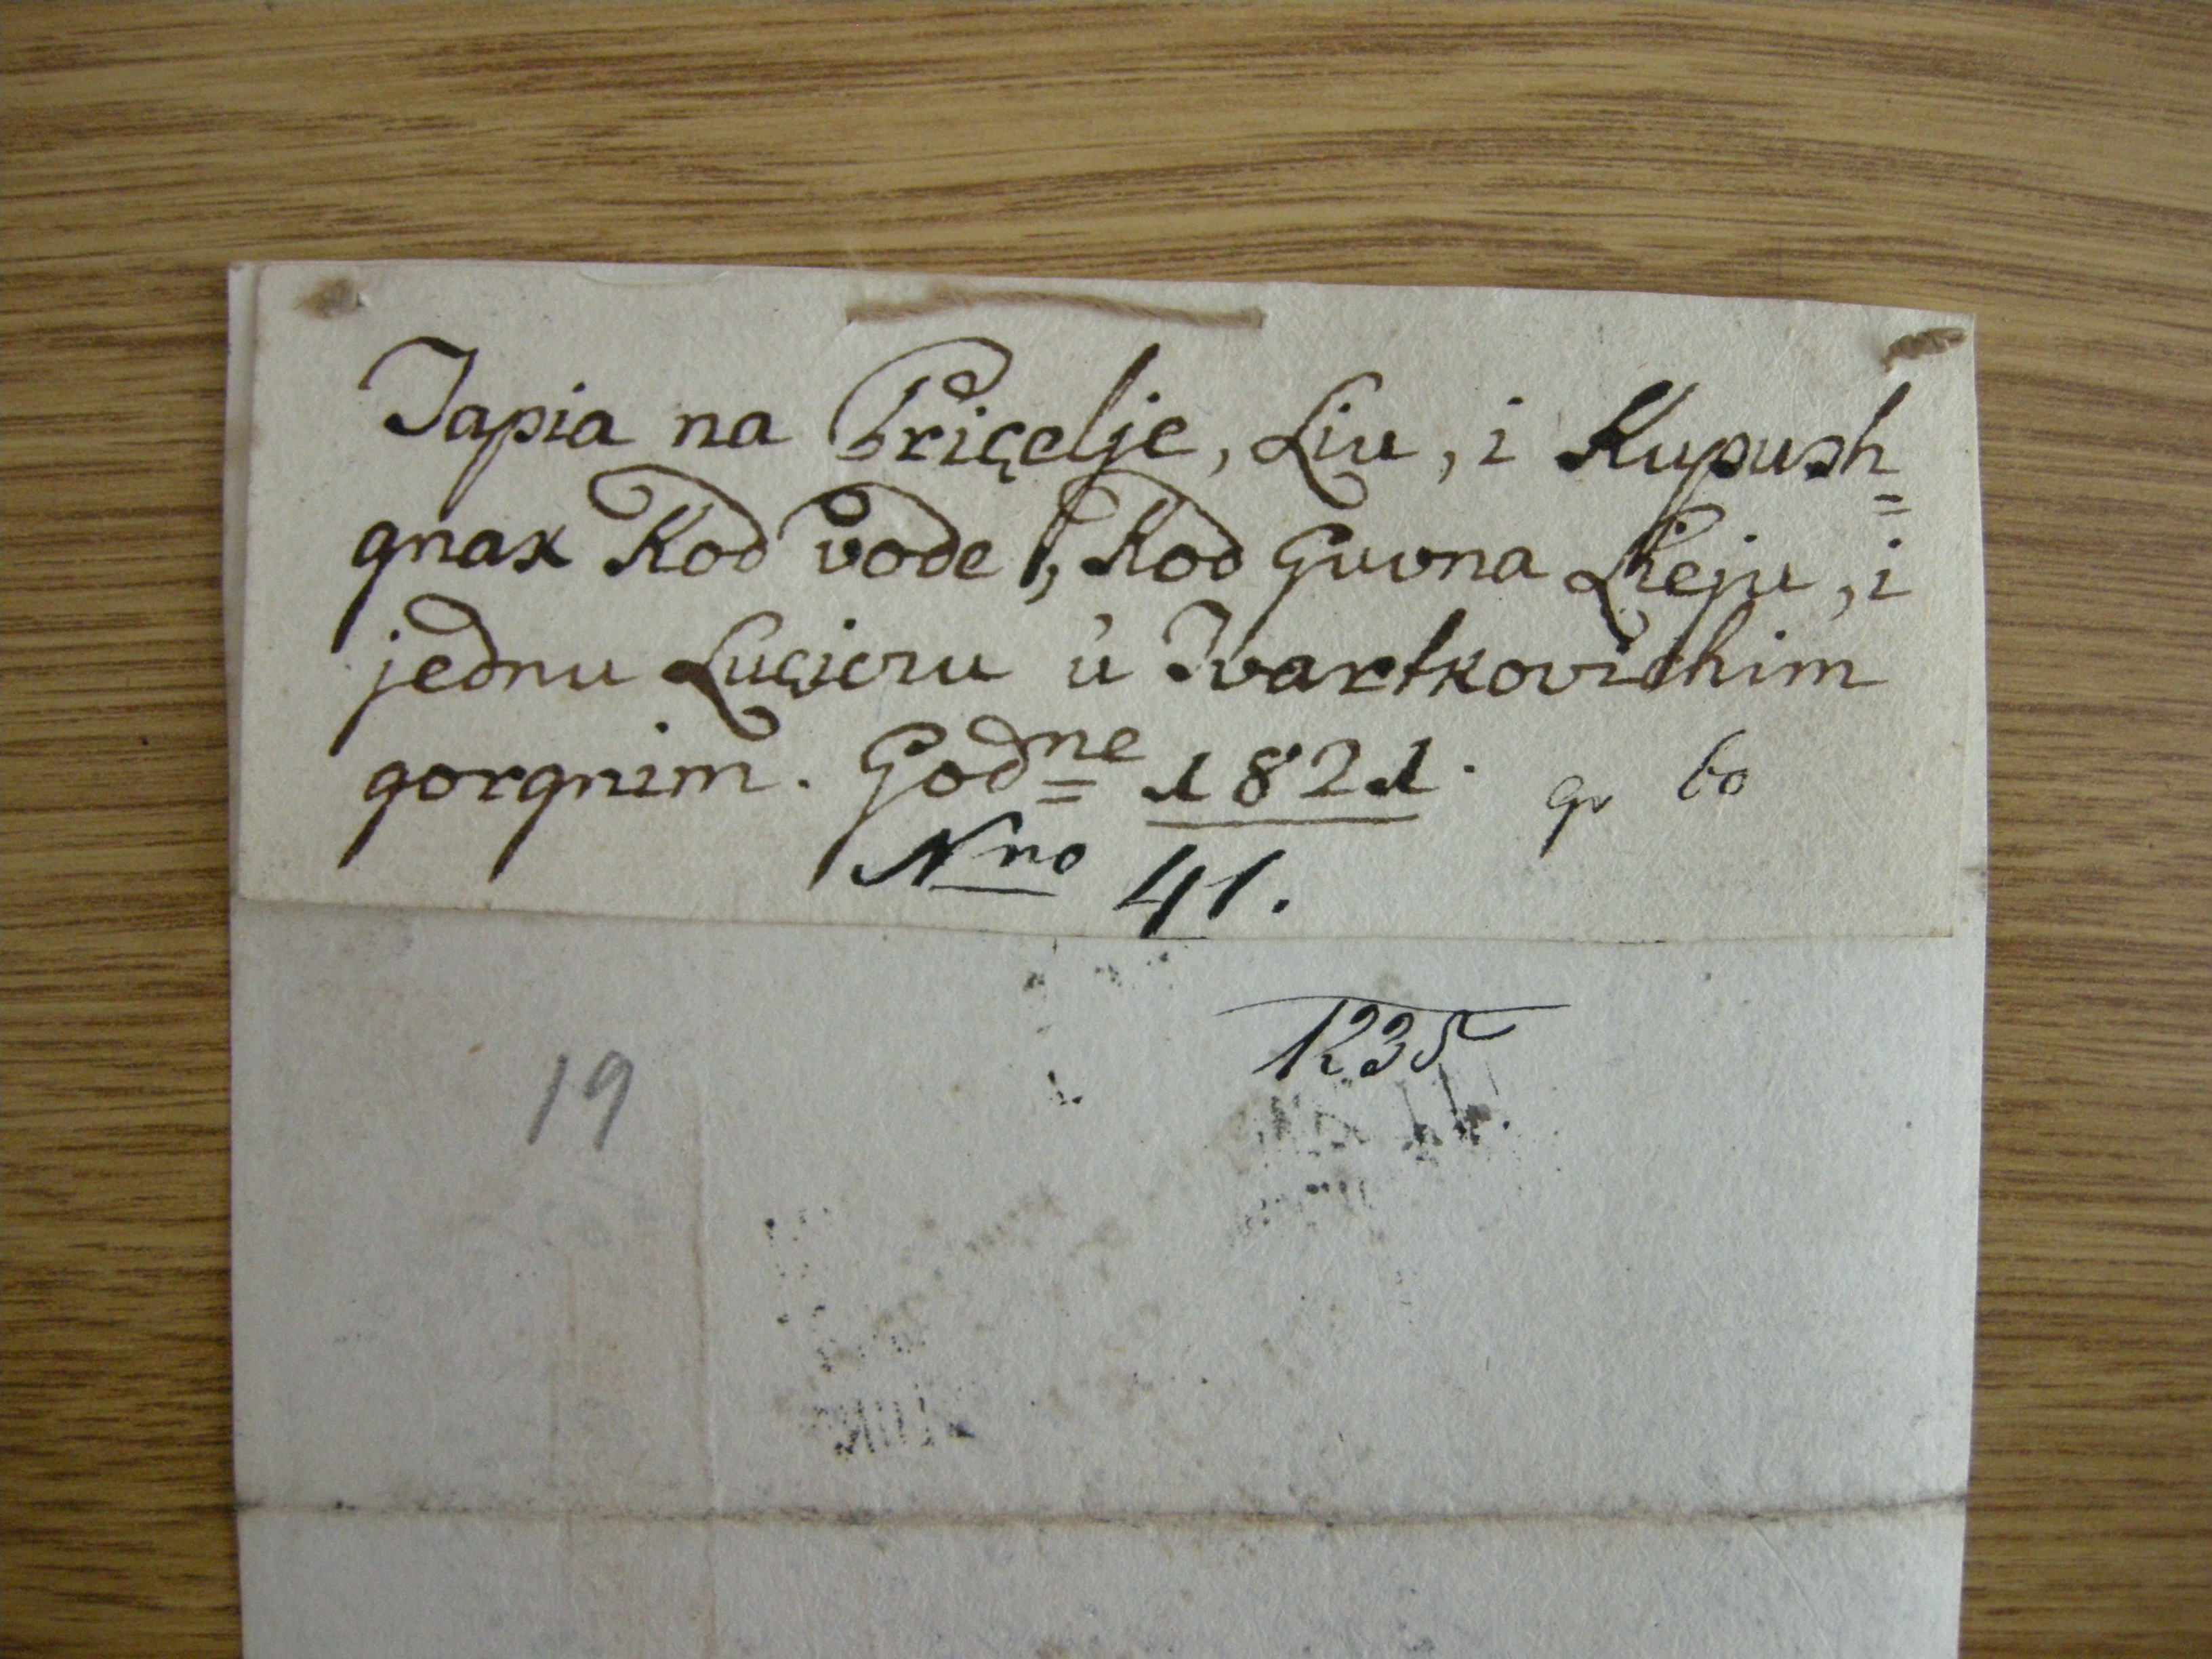 Tapia na Priçelje, Liu, i Kupush=
gnak Kod vode, Kod Guvna Lieju, i
jednu Luçicru u Tvartkovichim
gorgnim. Godne 1821. gr 60
Nro 41.
1235
19